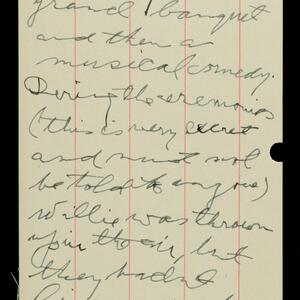 grand banquet
and then a
musical comedy.
During the ceremonies
(this is very secret
and must not
be told to anyone)
Willie was thrown
up in the air, but
they hadn't